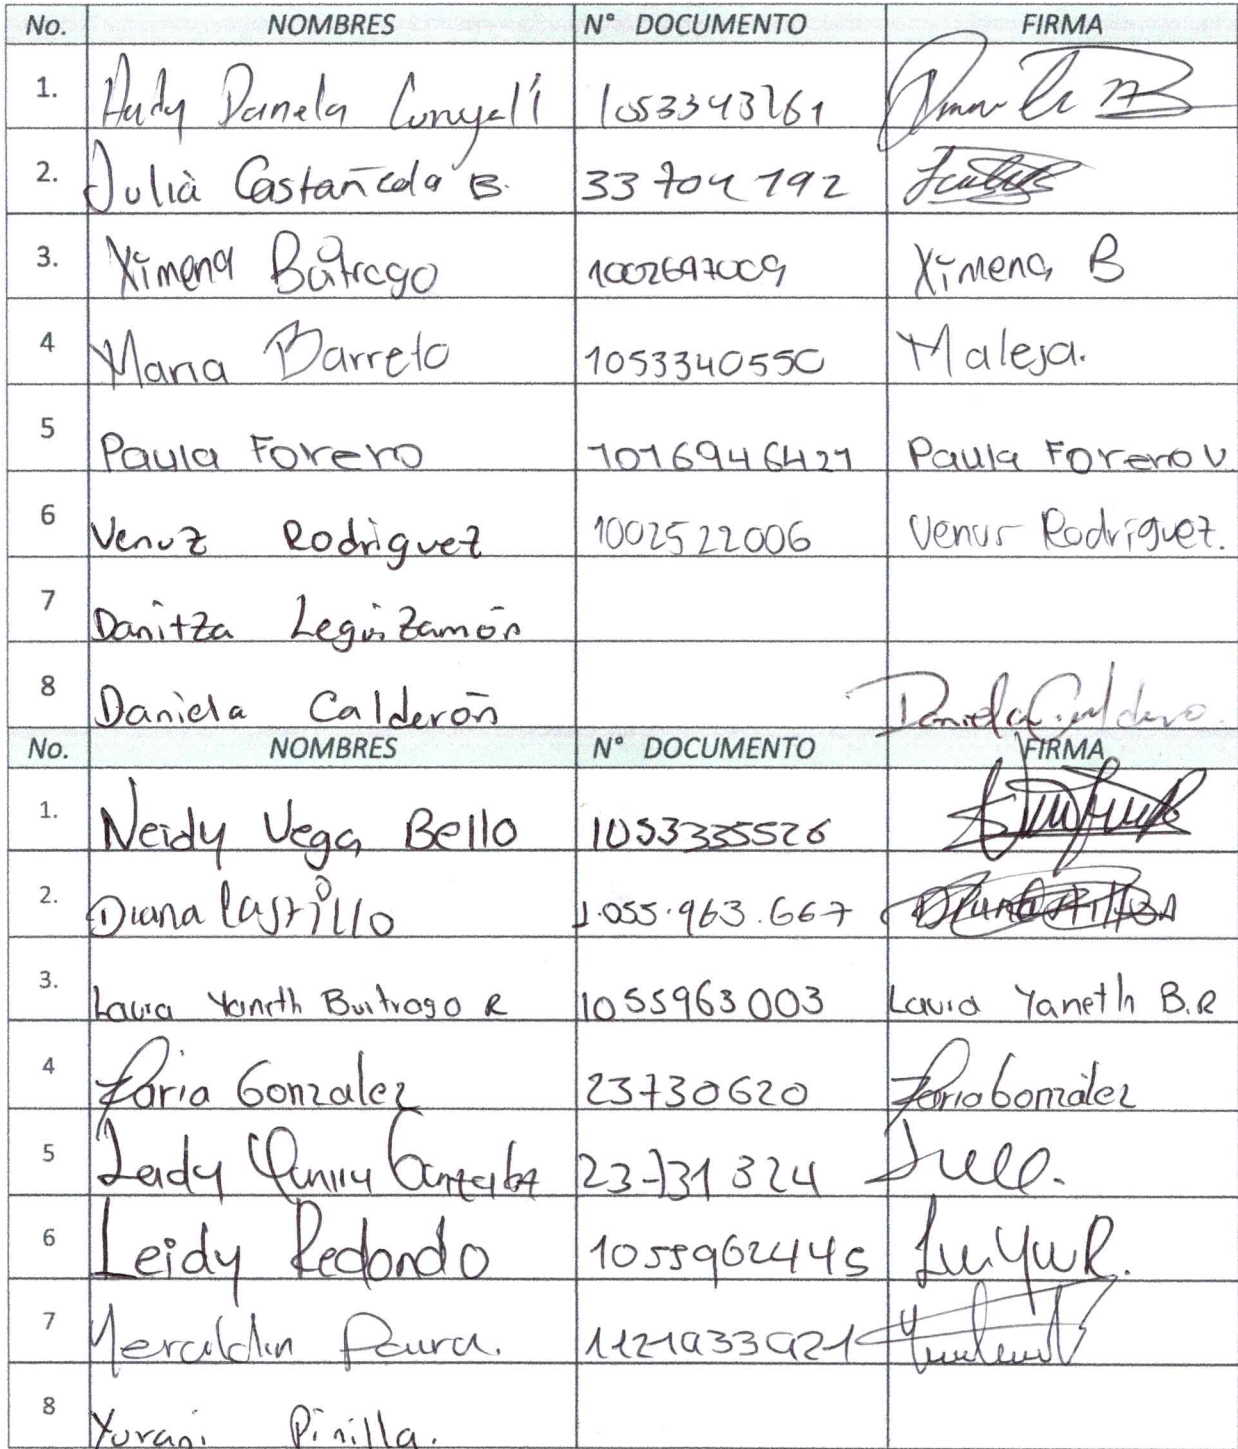 No. NOMBRES N° DOCUMENTO FIRMA
1. Danela 1053343261
2. Julià Castañeda B. 33704192
3. Ximena Buitrago 1002697009 Ximena B
4 Maria Barreto 1053340550 Maleja.
5 Paula Forero 1016946421 Paula Forero V
6 Venuz Rodriguez 1002522006 Venus Rodríguez.
7 Danitza Leguizamón
8 Daniela Calderón Daniela
No. NOMBRES N° DOCUMENTO FIRMA
1. Neidy Vega Bello 1053335526
2. Diana Castillo 1.055.963.667
3. Laura Yaneth Buitrago R 1055963003 Laura Yaneth B.R
4 Gonzalez 23730620 Gonzalez
5 Leidy 23731324
6 Leidy Redondo 1055962445
7 Yeraldin 1121933921
8 Yurani Pinilla.